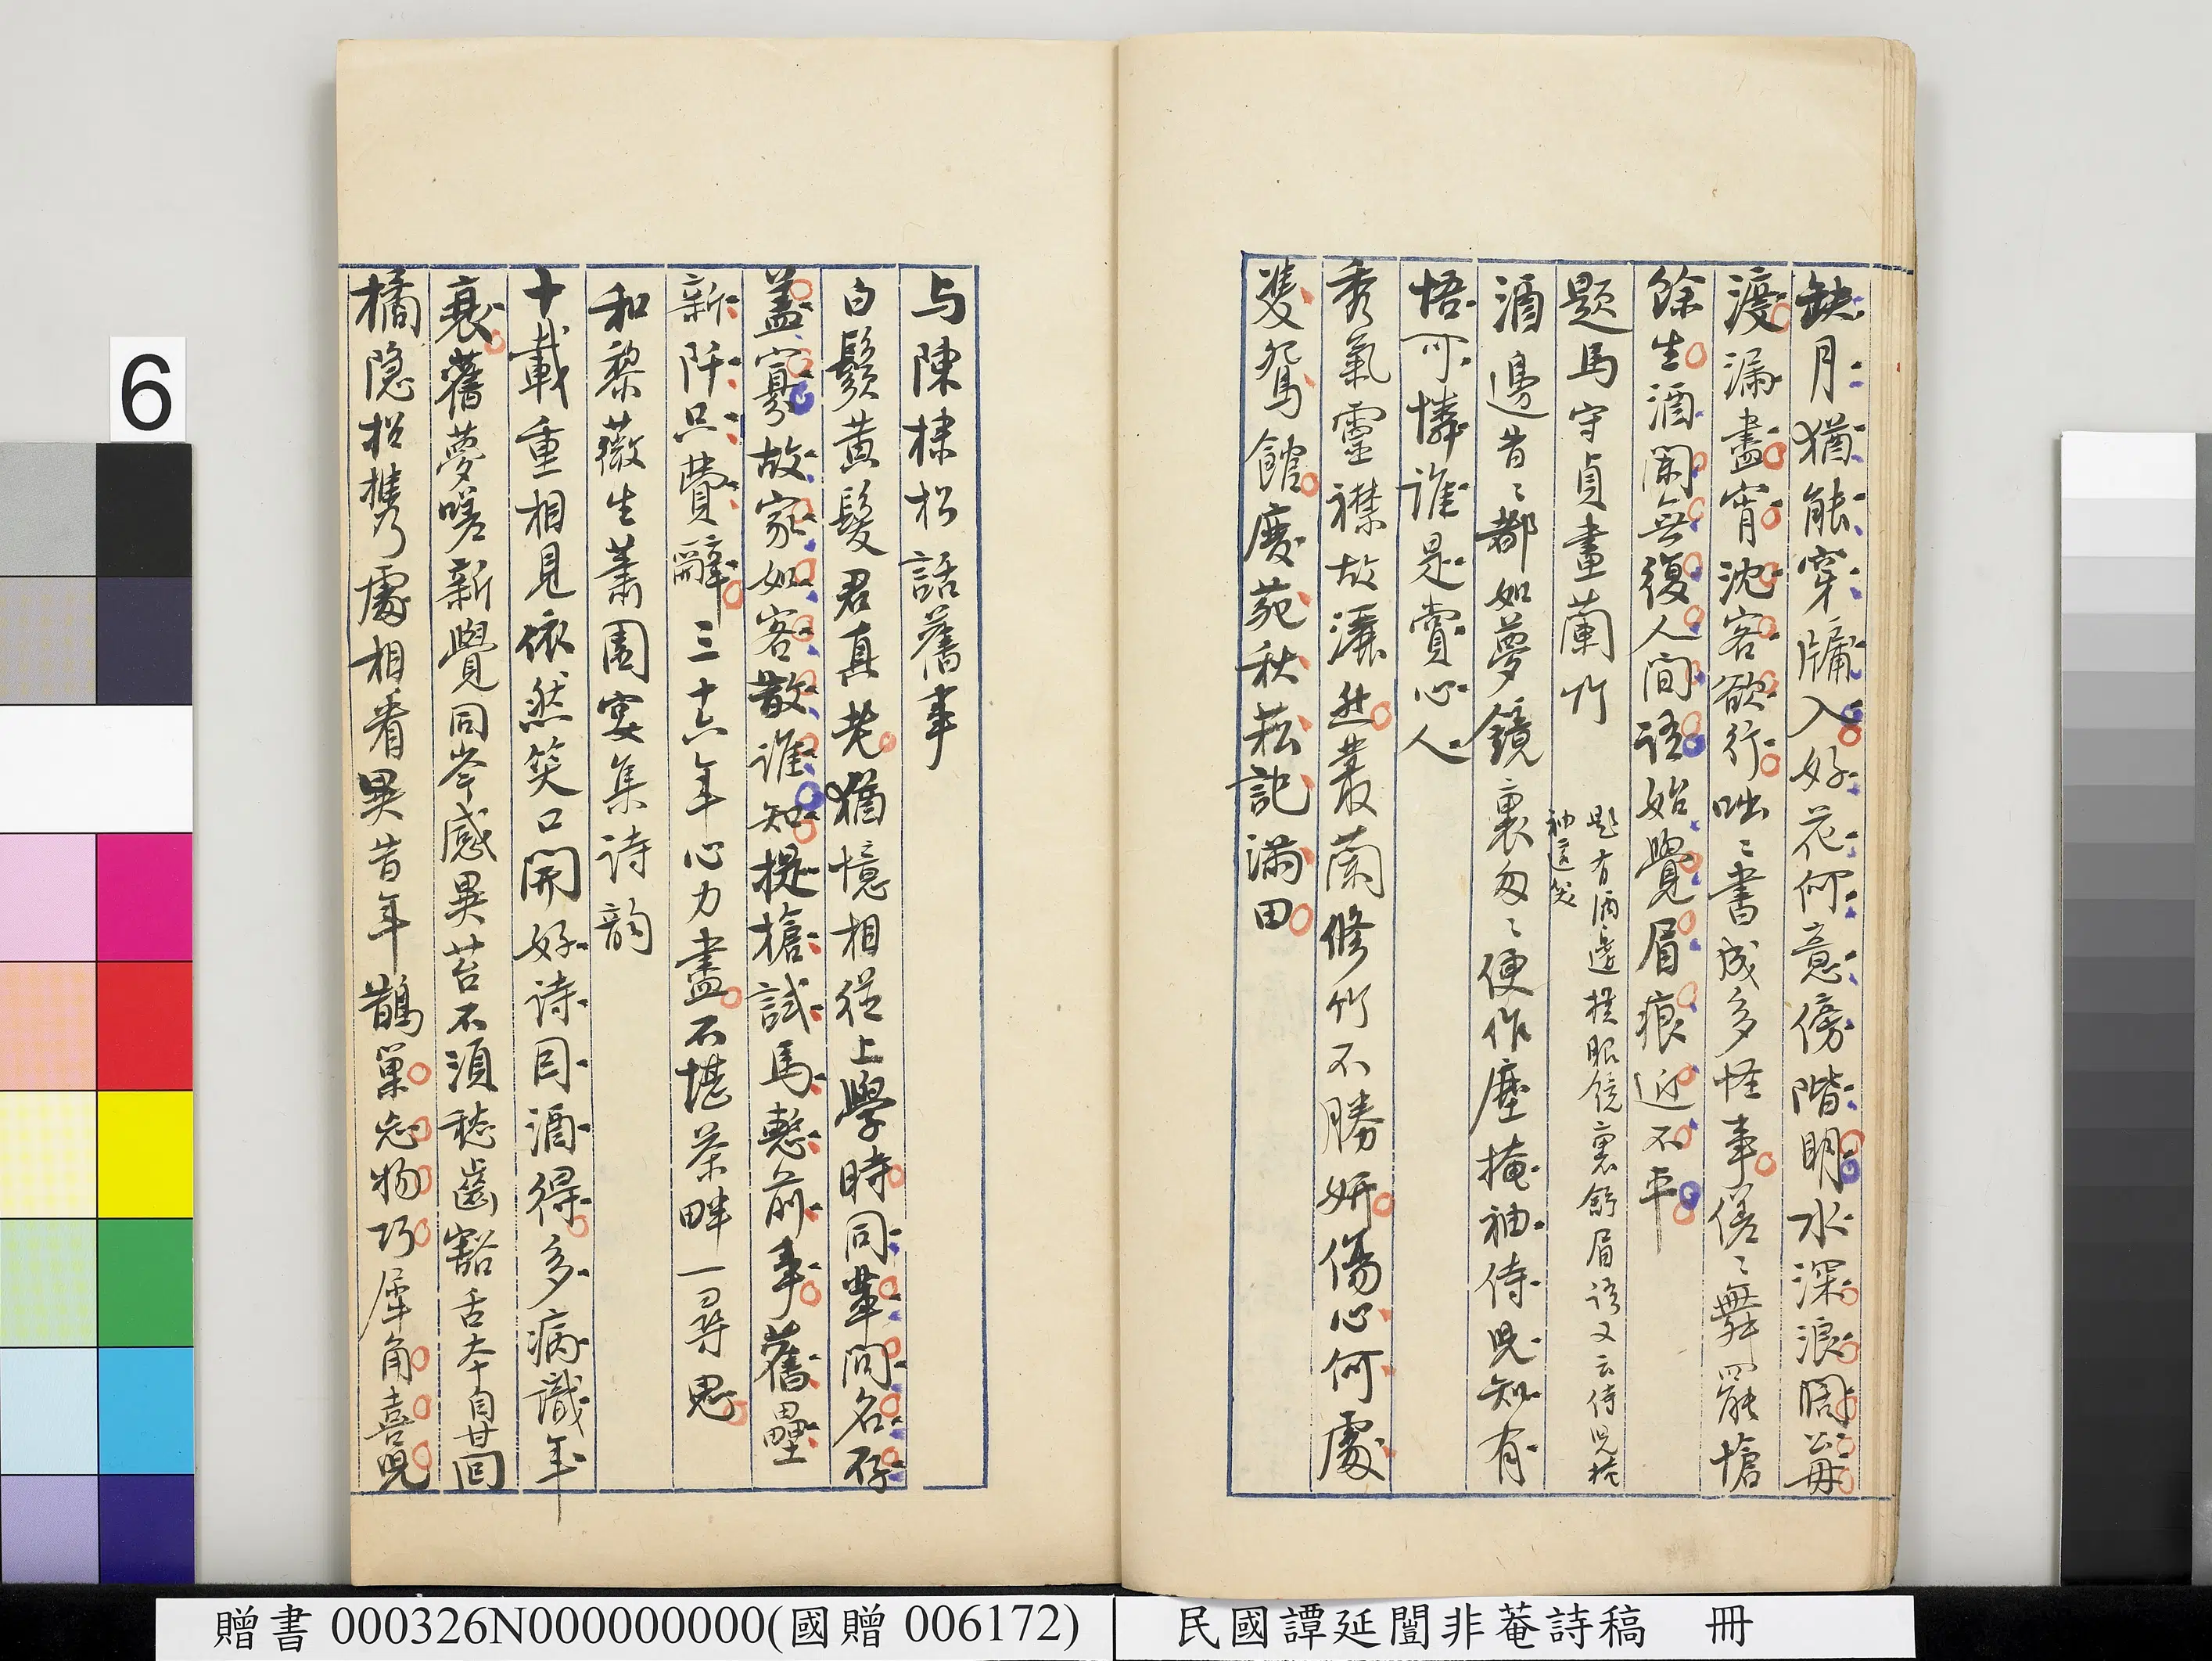 缺月猶能穿牖入好花何意傍階明水深浪闊毋
渡漏盡宵沈客欲行咄〻書成多怪事傞〻舞罷愴
餘生酒闌無復人間語始覺眉痕近不平
題馬守貞畫蘭竹
題有酒邊 昭鏡裏舒眉語又云侍兒
袖匳笑
酒邊昔〻都如夢鏡裏匆〻便作塵掩袖侍兒知有
悟可憐誰是賞心人
秀氣靈襟故灑然叢蘭修竹不勝妍傷心何處
雙鴛館廢苑秋菘記滿田
与陳棣松話舊事
白鬚黃髮君真老猶憶相從上學時同輩問名存
蓋寡故家如客散誰知提槍試馬慙前事舊壘
新阡只費辭三十六年心力盡不堪茶畔一尋思
和黎薇生蕭園宴集詩韵
十載重相見依然笑口開好詩因酒得多病識年
衰舊夢嗟新覺同岑感異苔不須愁齒豁舌本自甘回
橘隱招攜處相看異昔年鵲巢忘物巧犀角喜兒
6
贈書000326N000000000(國贈006172)
民國譚延闓非菴詩稿 冊